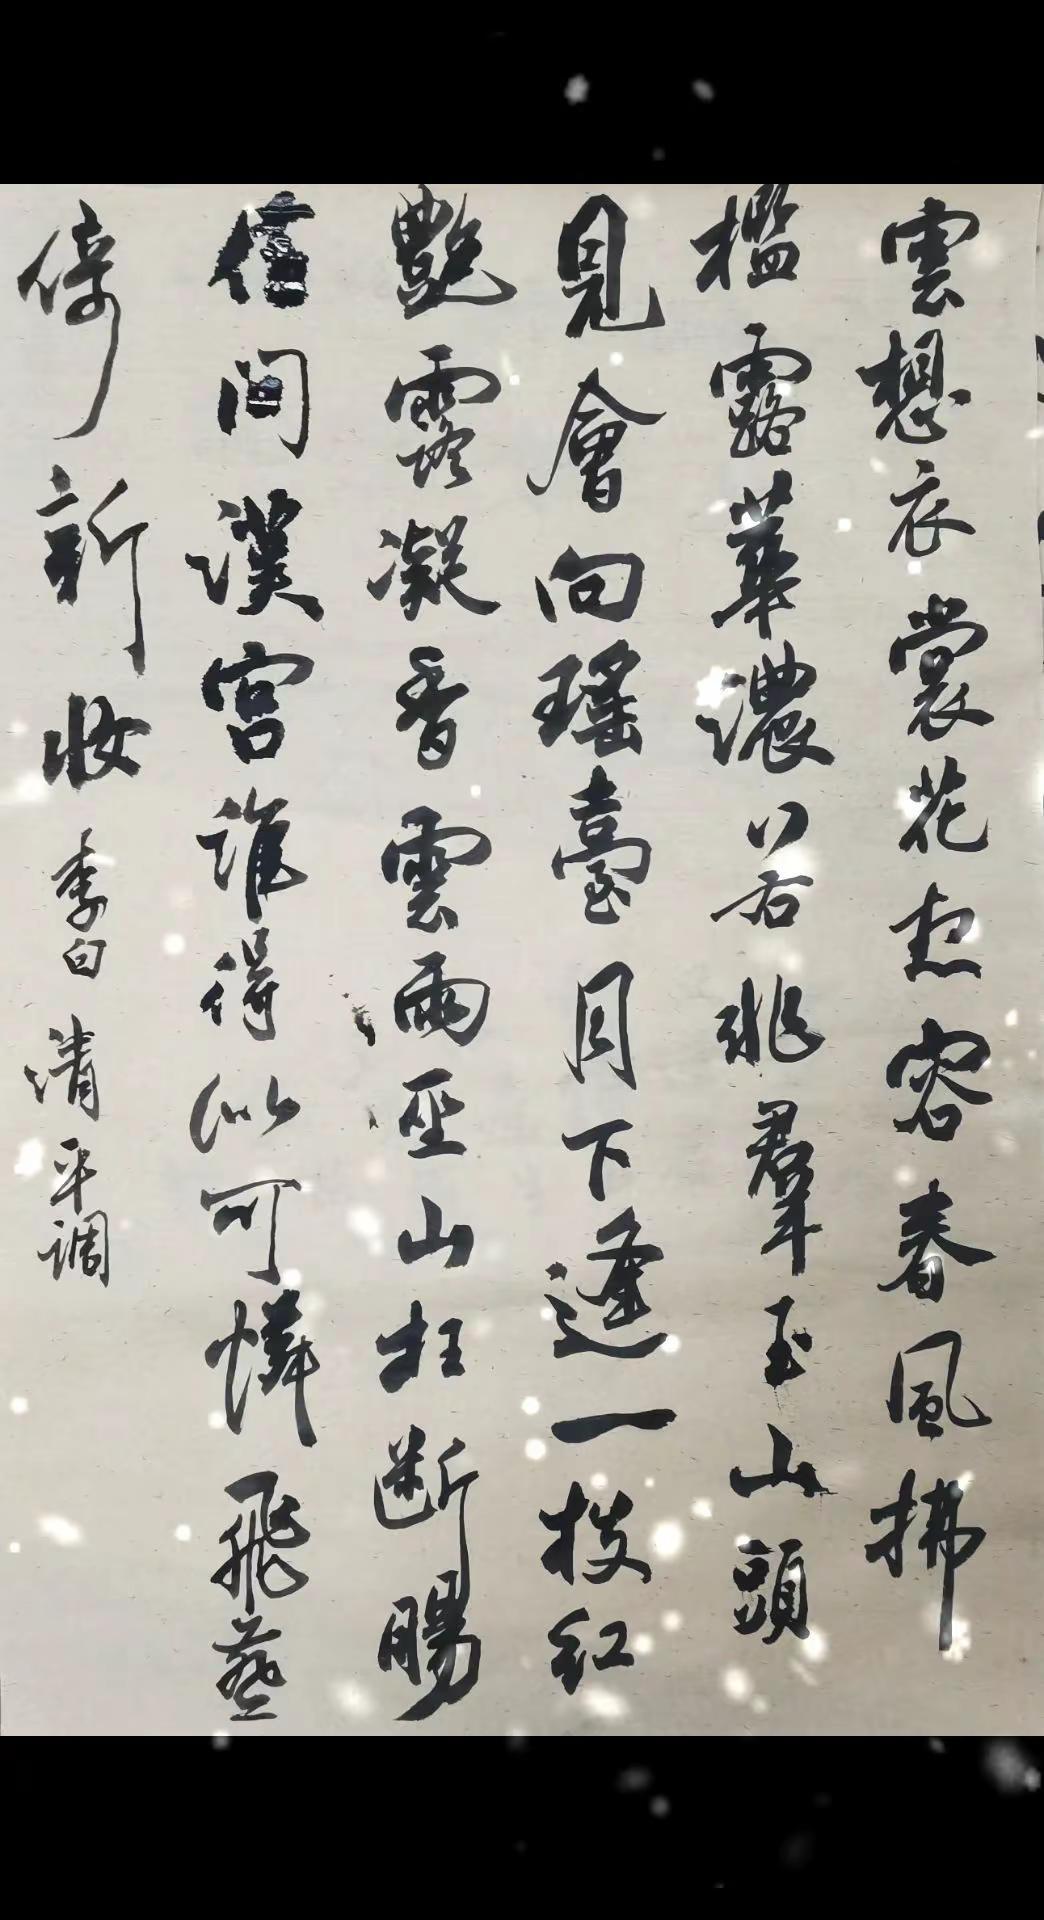 雲想衣裳花想容春風拂
檻露華濃若非羣玉山頭
見會向瑤臺月下逢一枝红
艷露凝香雲雨巫山枉斷腸
借問漢宮誰得似可憐飛燕
倚新妝 李白 清平调